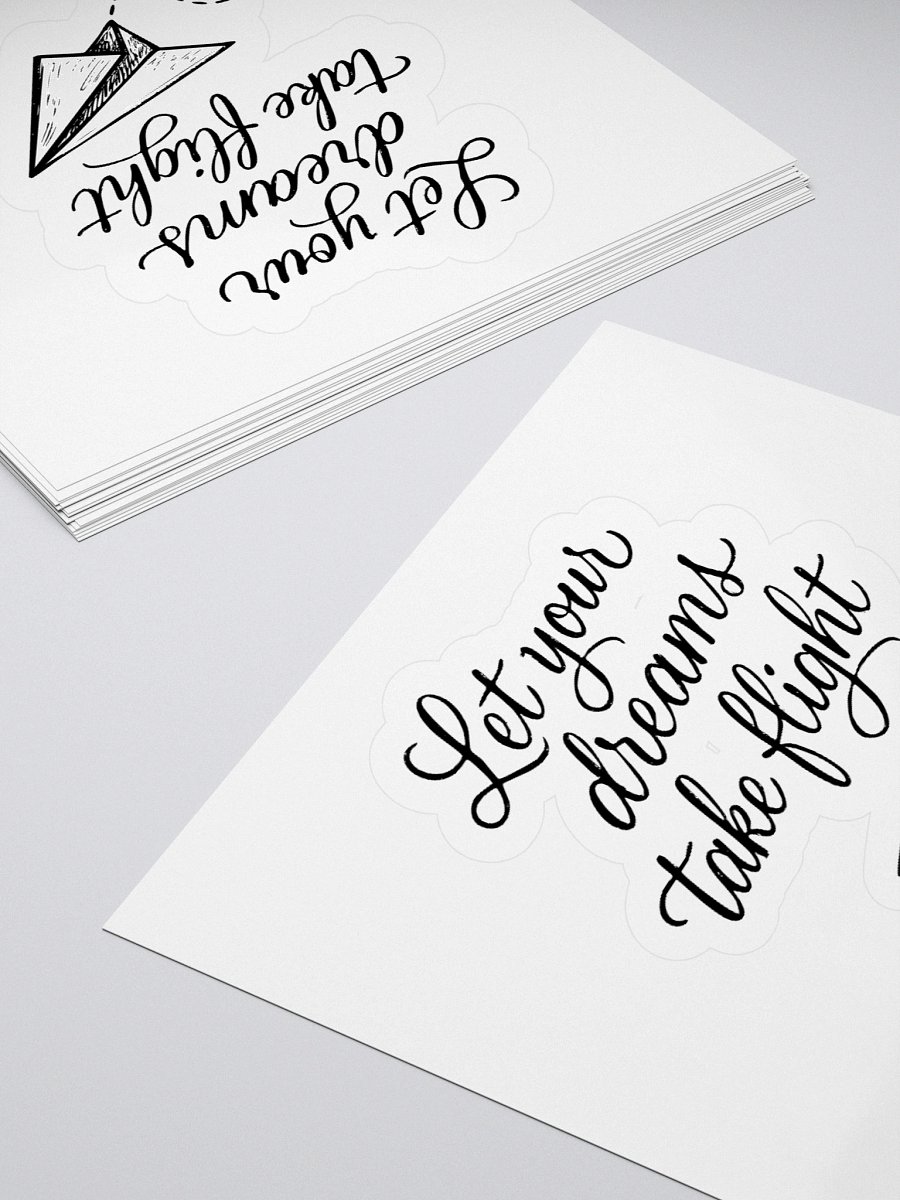 Let your
dreams
take flight
Let your
dreams
take flight